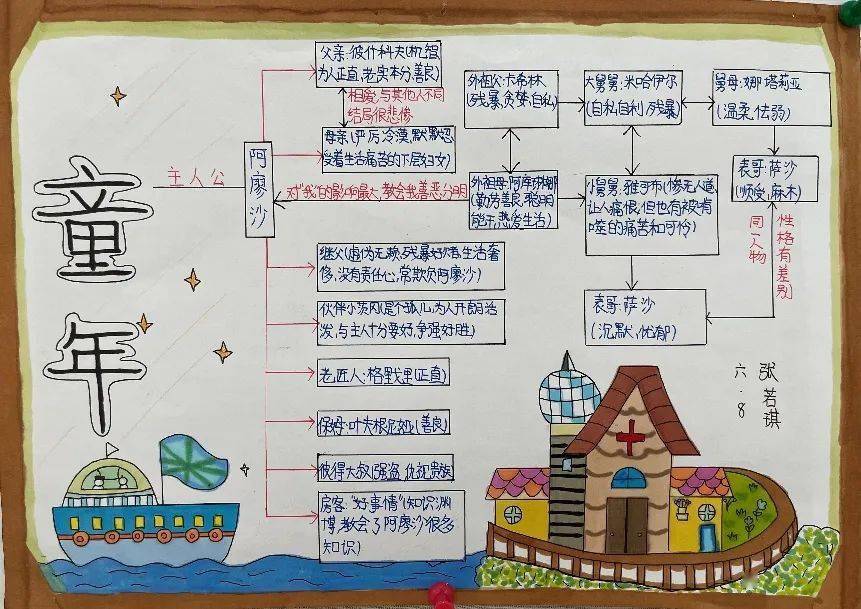 童年
主人公
阿廖沙
父亲:彼什科夫(机智
为人正直,老实本分,善良)
相爱,与其他人不同
结局很悲惨
母亲(严厉冷漠,默默忍
受着生活痛苦的下层妇女)
对"我"的影响最大,教会我善恶分明
外祖父:卡希林
(残暴,贪婪,自私)
大舅舅:米哈伊尔
(自私自利,残暴)
舅母:娜塔莉亚
(温柔,怯弱)
外祖母:阿库琳娜
(勤劳善良,聪明
能干,热爱生活)
小舅舅:雅可布(惨无人道,
让人痛恨,但也有被啃
噬的痛苦和可怜)
表哥:萨沙
(顺受,麻木)
性格有差别
同一人物
表哥:萨沙
(沉默,忧郁)
继父(虚伪无赖,残暴好赌,生活奢
侈,没有责任心,常欺负阿廖沙)
伙伴小茨冈(是个孤儿,为人开朗活
泼,与主人十分要好,争强好胜)
老匠人:格里戈里(正直)
保姆:叶夫根尼娅(善良)
彼得大叔(强盗,仇视贵族)
房客:"好事情"(知识渊
博,教会了阿廖沙很多
知识)
张若琪
六.8